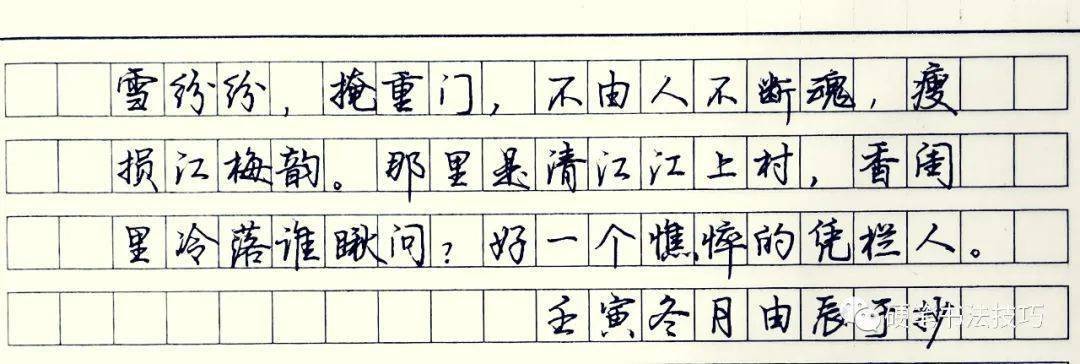 雪纷纷，掩重门，不由人不断魂，瘦
损江梅韵。那里是清江江上村，香闺
里冷落谁瞅问？好一个憔悴的凭栏人。
壬寅冬月由辰于抄
硬笔书法技巧